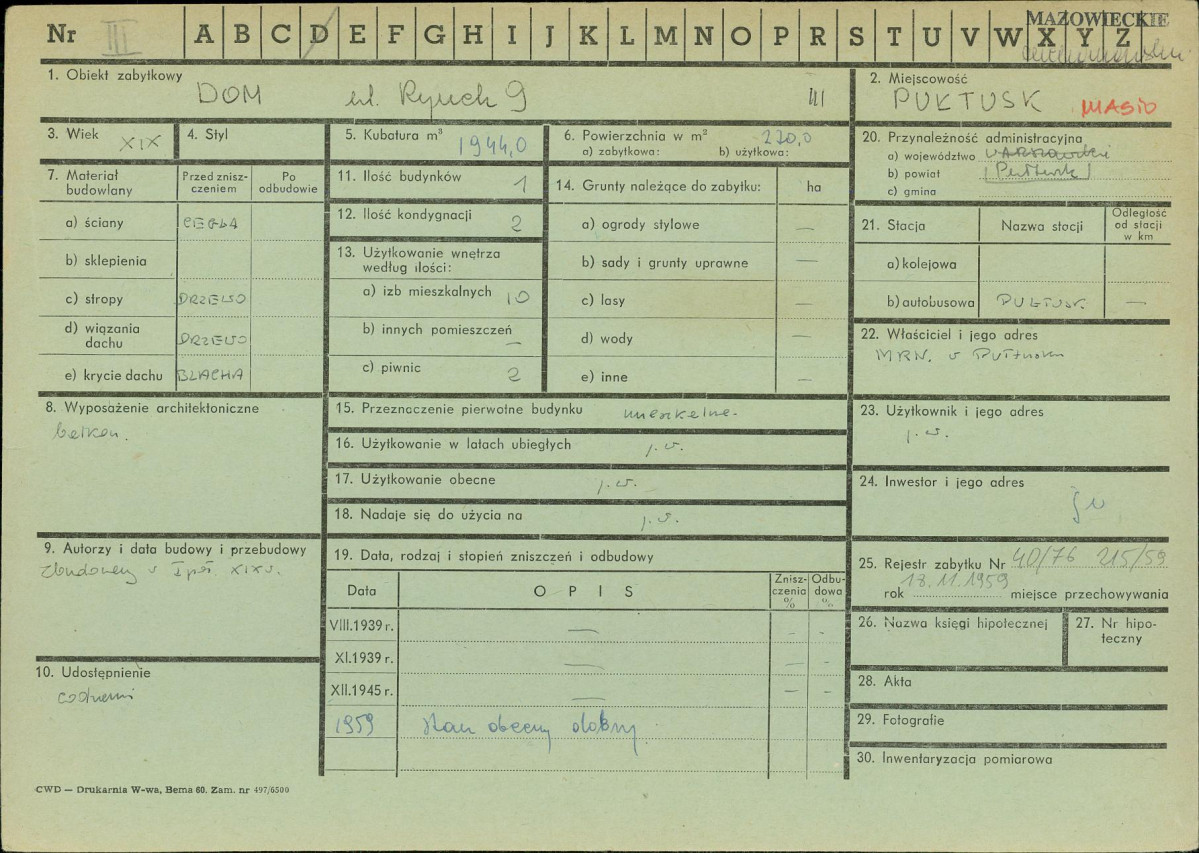 Nr III A B C D E F G H I J K L M N O P R S T U V W X Y Z
MAZOWIECKIE
1. Obiekt zabytkowy
DOM ul. Rynek 9 III
2. Miejscowość
PUŁTUSK MASTO
3. Wiek XIX
4. Styl
5. Kubatura m³ 1944,0
6. Powierzchnia w m² 220,0
a) zabytkowa: b) użytkowa:
7. Materiał budowlany
Przed zniszczeniem
Po odbudowie
a) ściany CEGŁA
b) sklepienia
c) stropy DRZEWO
d) wiązania dachu DRZEWO
e) krycie dachu BLACHA
8. Wyposażenie architektoniczne
balkon.
9. Autorzy i data budowy i przebudowy
Zbudowany w I poł. XIX w.
10. Udostępnienie
codzienni
11. Ilość budynków 1
12. Ilość kondygnacji 2
13. Użytkowanie wnętrza
według ilości:
a) izb mieszkalnych 10
b) innych pomieszczeń —
c) piwnic 2
14. Grunty należące do zabytku: ha
a) ogrody stylowe —
b) sady i grunty uprawne —
c) lasy —
d) wody —
e) inne —
15. Przeznaczenie pierwotne budynku mieszkalne.
16. Użytkowanie w latach ubiegłych j.w.
17. Użytkowanie obecne j.w.
18. Nadaje się do użycia na j.w.
19. Data, rodzaj i stopień zniszczeń i odbudowy
Data OPIS Zniszczenia % Odbudowa %
VIII.1939 r. — - -
XI.1939 r. — — -
XII.1945 r. — — -
1959 stan obecny dobry.
20. Przynależność administracyjna
a) województwo warszawskie
b) powiat Pułtusk
c) gmina
21. Stacja Nazwa stacji Odległość od stacji w km
a) kolejowa
b) autobusowa PUŁTUSK —
22. Właściciel i jego adres
MRN. w Pułtusku
23. Użytkownik i jego adres
j.w.
24. Inwestor i jego adres
jw
25. Rejestr zabytku Nr 40/76 215/59
rok 18.11.1959 miejsce przechowywania
26. Nazwa księgi hipotecznej
27. Nr hipoteczny
28. Akta
29. Fotografie
30. Inwentaryzacja pomiarowa
CWD — Drukarnia W-wa, Bema 60. Zam. nr 497/6500